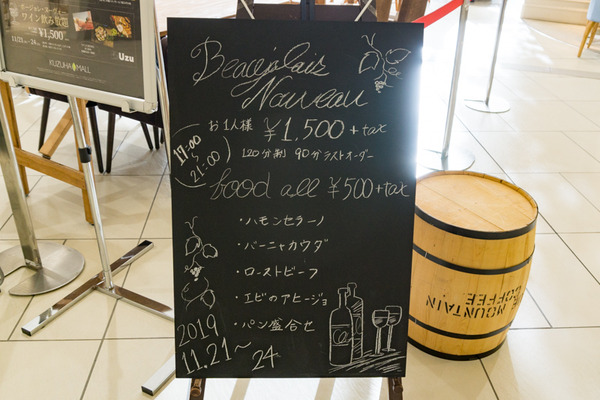 ボージョレ・ヌーヴォー
ワイン飲み放題
¥1,500
11/21~24
Uzu
KUZUHA MALL
Beaujolais
Nouveau
お1人様 ¥1,500+tax
17:00
~
21:00
120分制 90分ラストオーダー
food all ¥500+tax
・ハモンセラーノ
・バーニャカウダ
・ローストビーフ
・エビのアヒージョ
・パン盛合せ
2019
11.21~24
MOUNTAIN
COFFEE